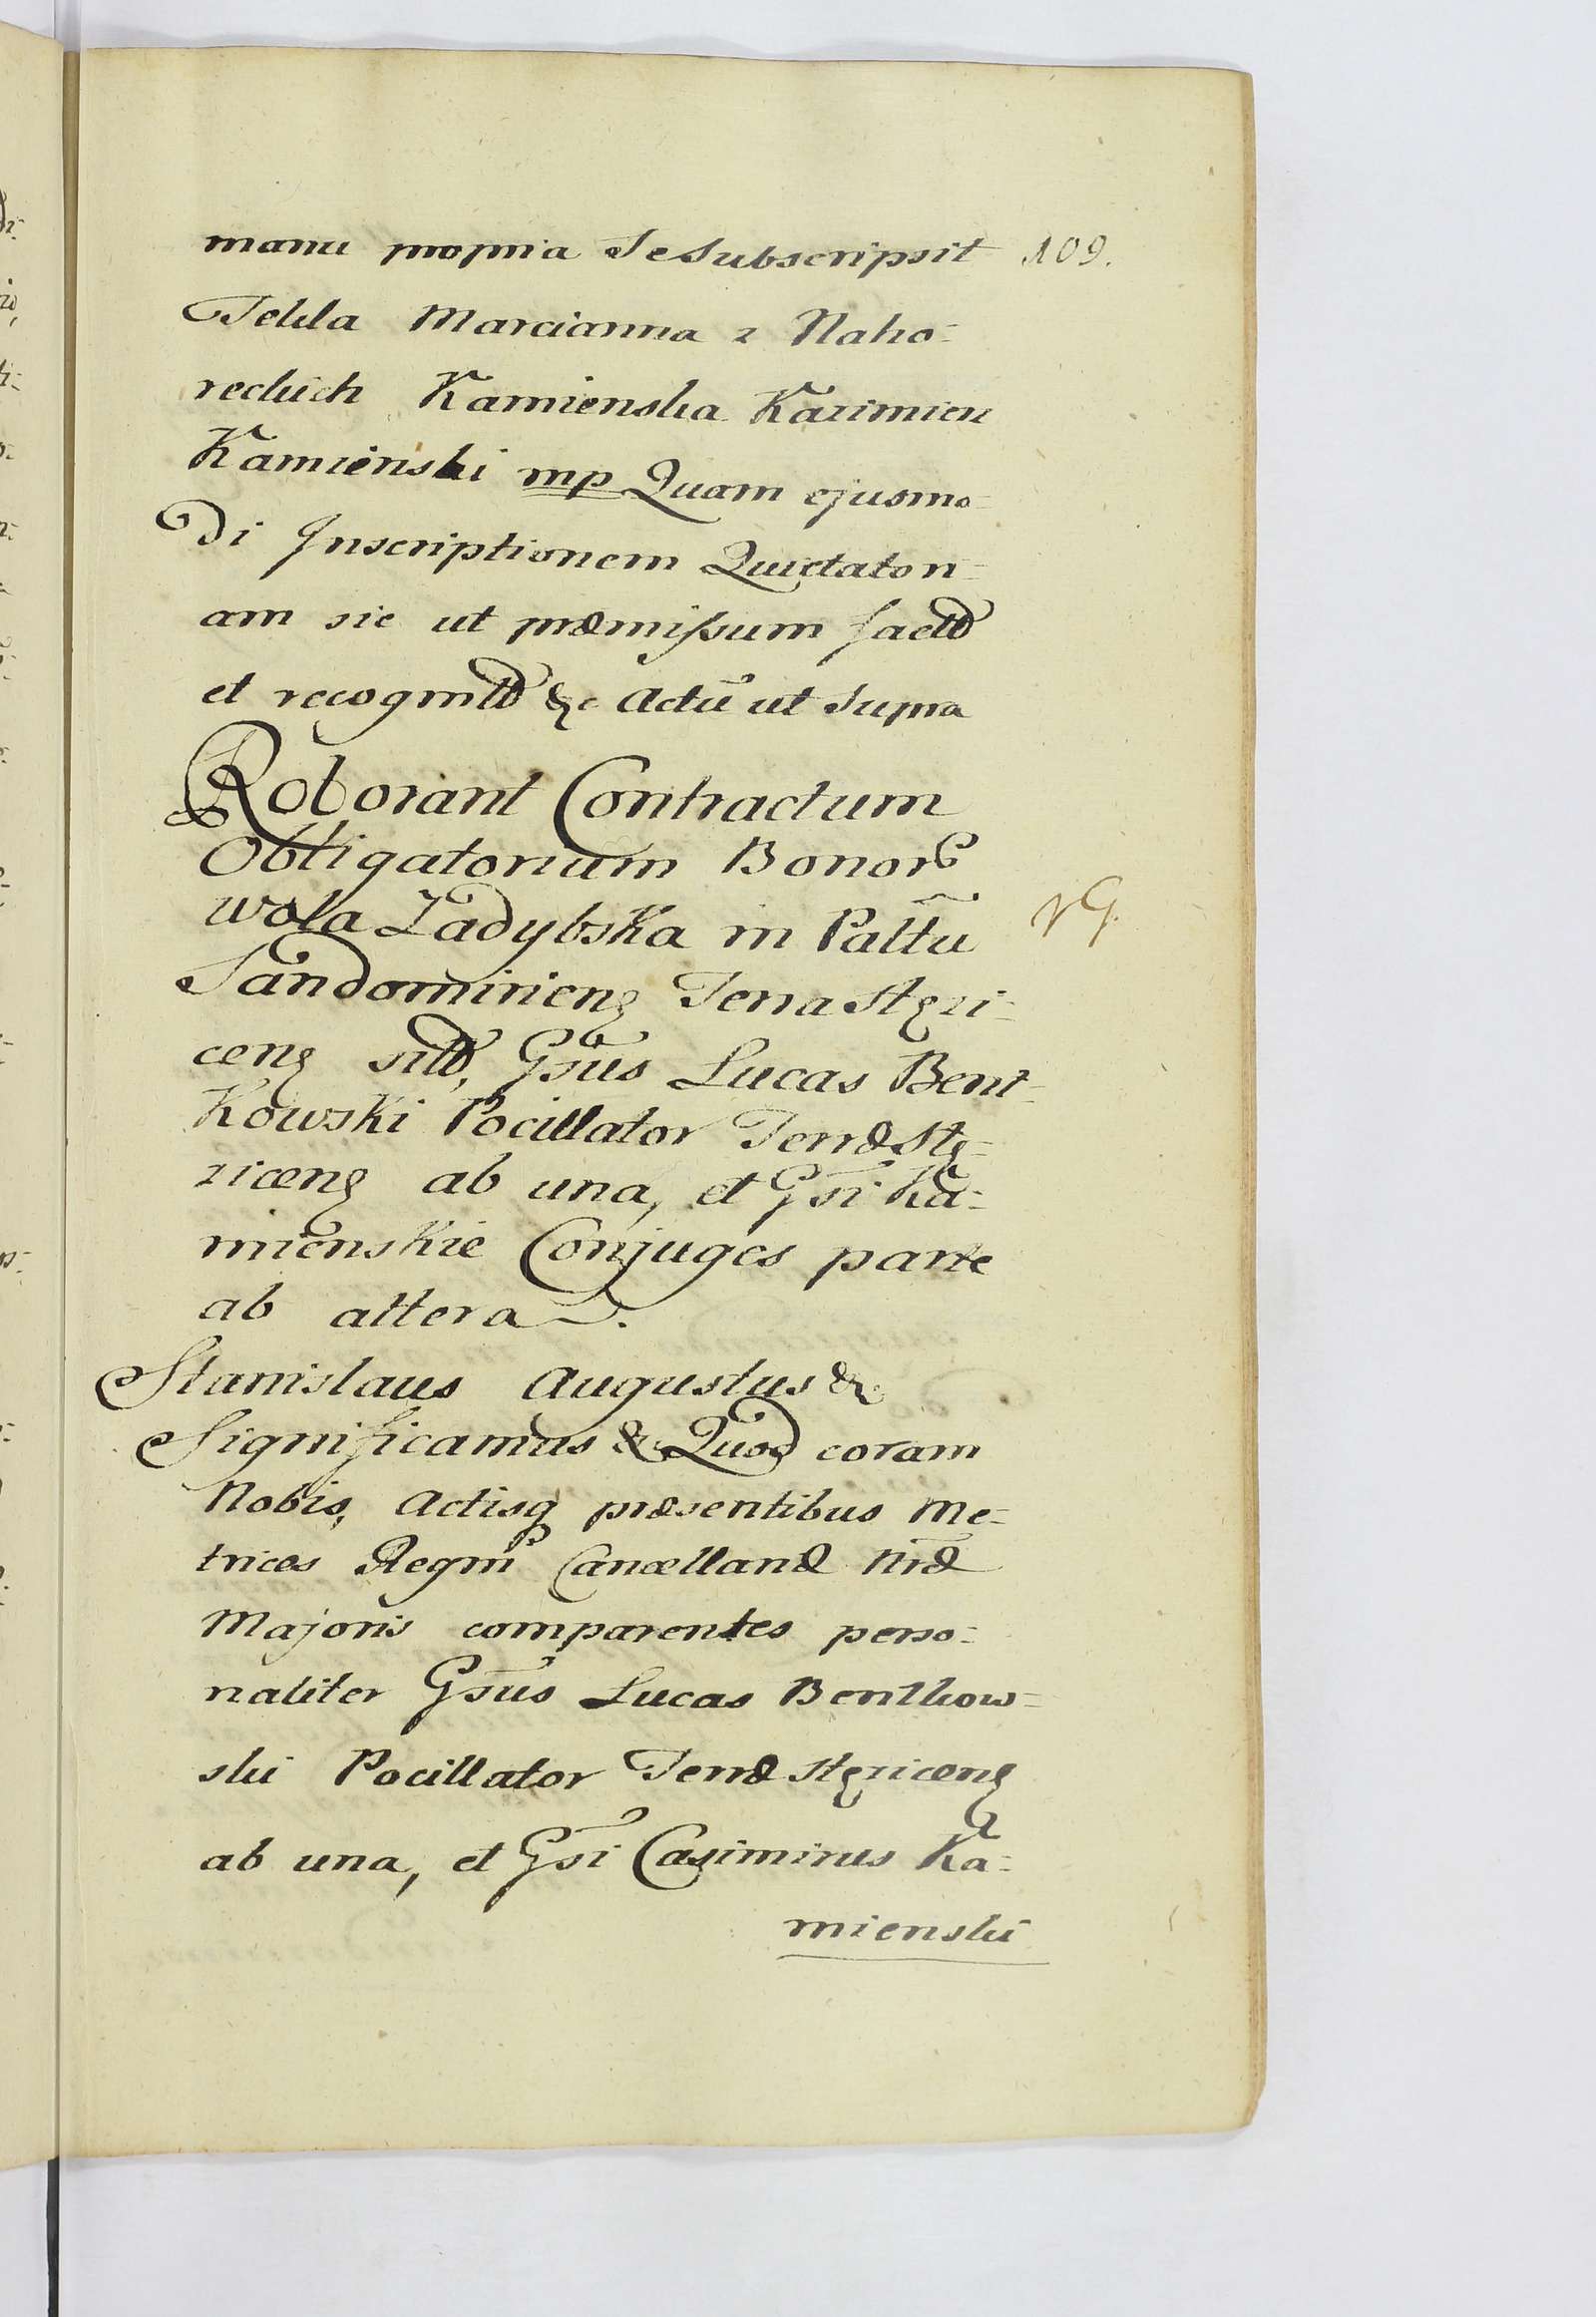 manu propria Se Subscripsit 109.
Tekla Marcianna z Naho=
reckich Kamienska Kazimierz
Kamienski mp Quam ejusmo=
di Inscriptionem Quietatori=
am sic ut præmissum factã
et recognitã &c Actũ ut Supra
Roborant Contractum
Obligatorium Bonorũ
wola Zadybska in Palttũ
Sandomirieng Terra Stęzi=
ceng sitã, Gsũs Lucas Bent=
Kowski Pocillator Terræ Stę=
ziceng ab una, et Gsĩ Ka=
mienskie Conjuges parte
ab altera.
Stanislaus Augustus &c
Significamus &c Quod coram
Nobis, Actisq præsentibus Me=
trices Regni Cancellariæ Nræ
Majoris comparentes perso=
naliter Gsũs Lucas Bentkow=
ski Pocillator Terræ Stęziceng
ab una, et Gsĩ Casimirus Ka=
mienski